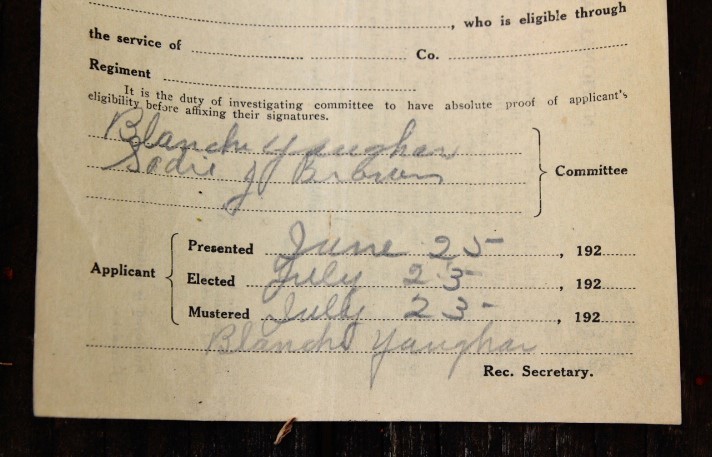 , who is eligible through
the service of Co.
Regiment
It is the duty of investigating committee to have absolute proof of applicant's
eligibility before affixing their signatures.
Blanche Yaughan
Sadie J Brown
Committee
Applicant
Presented June 25 , 192
Elected July 23 , 192
Mustered July 23 , 192
Blanche Yaughan
Rec. Secretary.